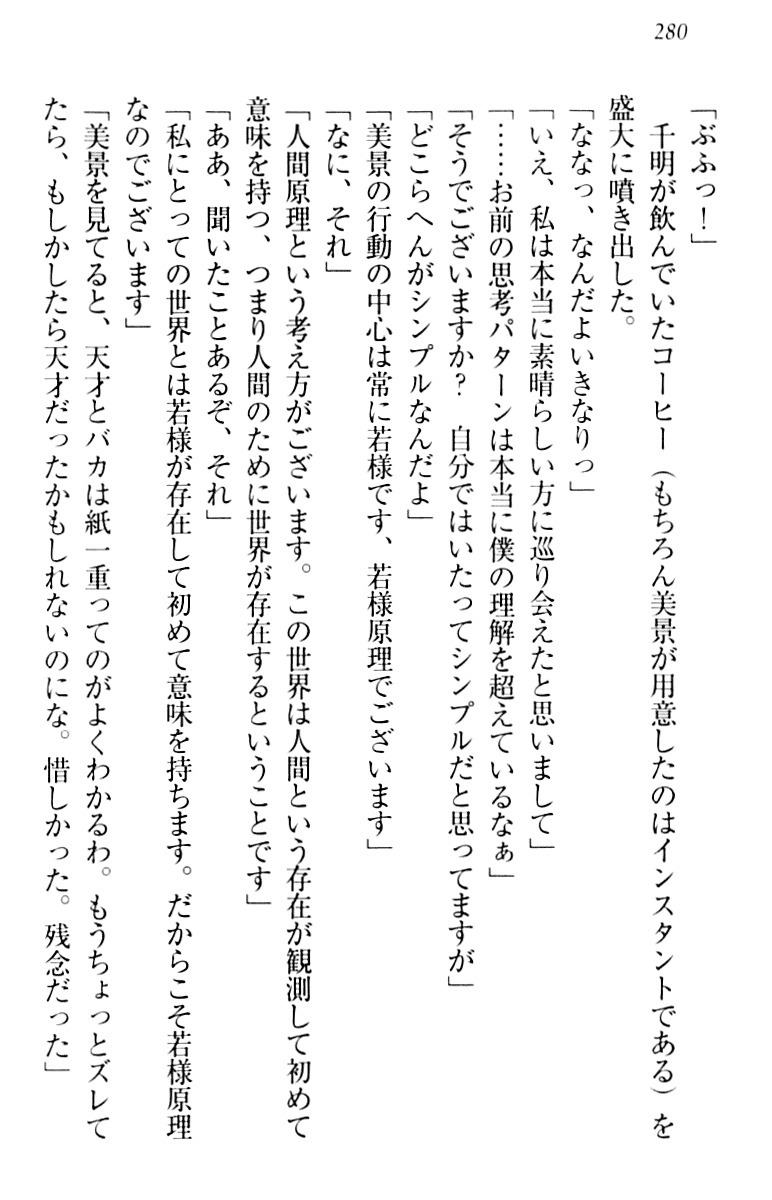 280
「ぶふっ！」
　千明が飲んでいたコーヒー（もちろん美景が用意したのはインスタントである）を
盛大に噴き出した。
「ななっ、なんだよいきなりっ」
「いえ、私は本当に素晴らしい方に巡り会えたと思いまして」
「……お前の思考パターンは本当に僕の理解を超えているなぁ」
「そうでございますか？　自分ではいたってシンプルだと思ってますが」
「どこらへんがシンプルなんだよ」
「美景の行動の中心は常に若様です、若様原理でございます」
「なに、それ」
「人間原理という考え方がございます。この世界は人間という存在が観測して初めて
意味を持つ、つまり人間のために世界が存在するということです」
「ああ、聞いたことあるぞ、それ」
「私にとっての世界とは若様が存在して初めて意味を持ちます。だからこそ若様原理
なのでございます」
「美景を見てると、天才とバカは紙一重ってのがよくわかるわ。もうちょっとズレて
たら、もしかしたら天才だったかもしれないのにな。惜しかった。残念だった」